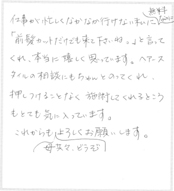 仕事が忙しくなかなか行けない私に無料
「前髪カットだけでも来て下さいね。」と言って
くれ、本当に嬉しく思っています。ヘアース
タイルの相談にもちゃんとのってくれ、
押しつけることなく施術してくれるところ
もとても気に入っています。
これからもよろしくお願いします。
母女で、どうぞ